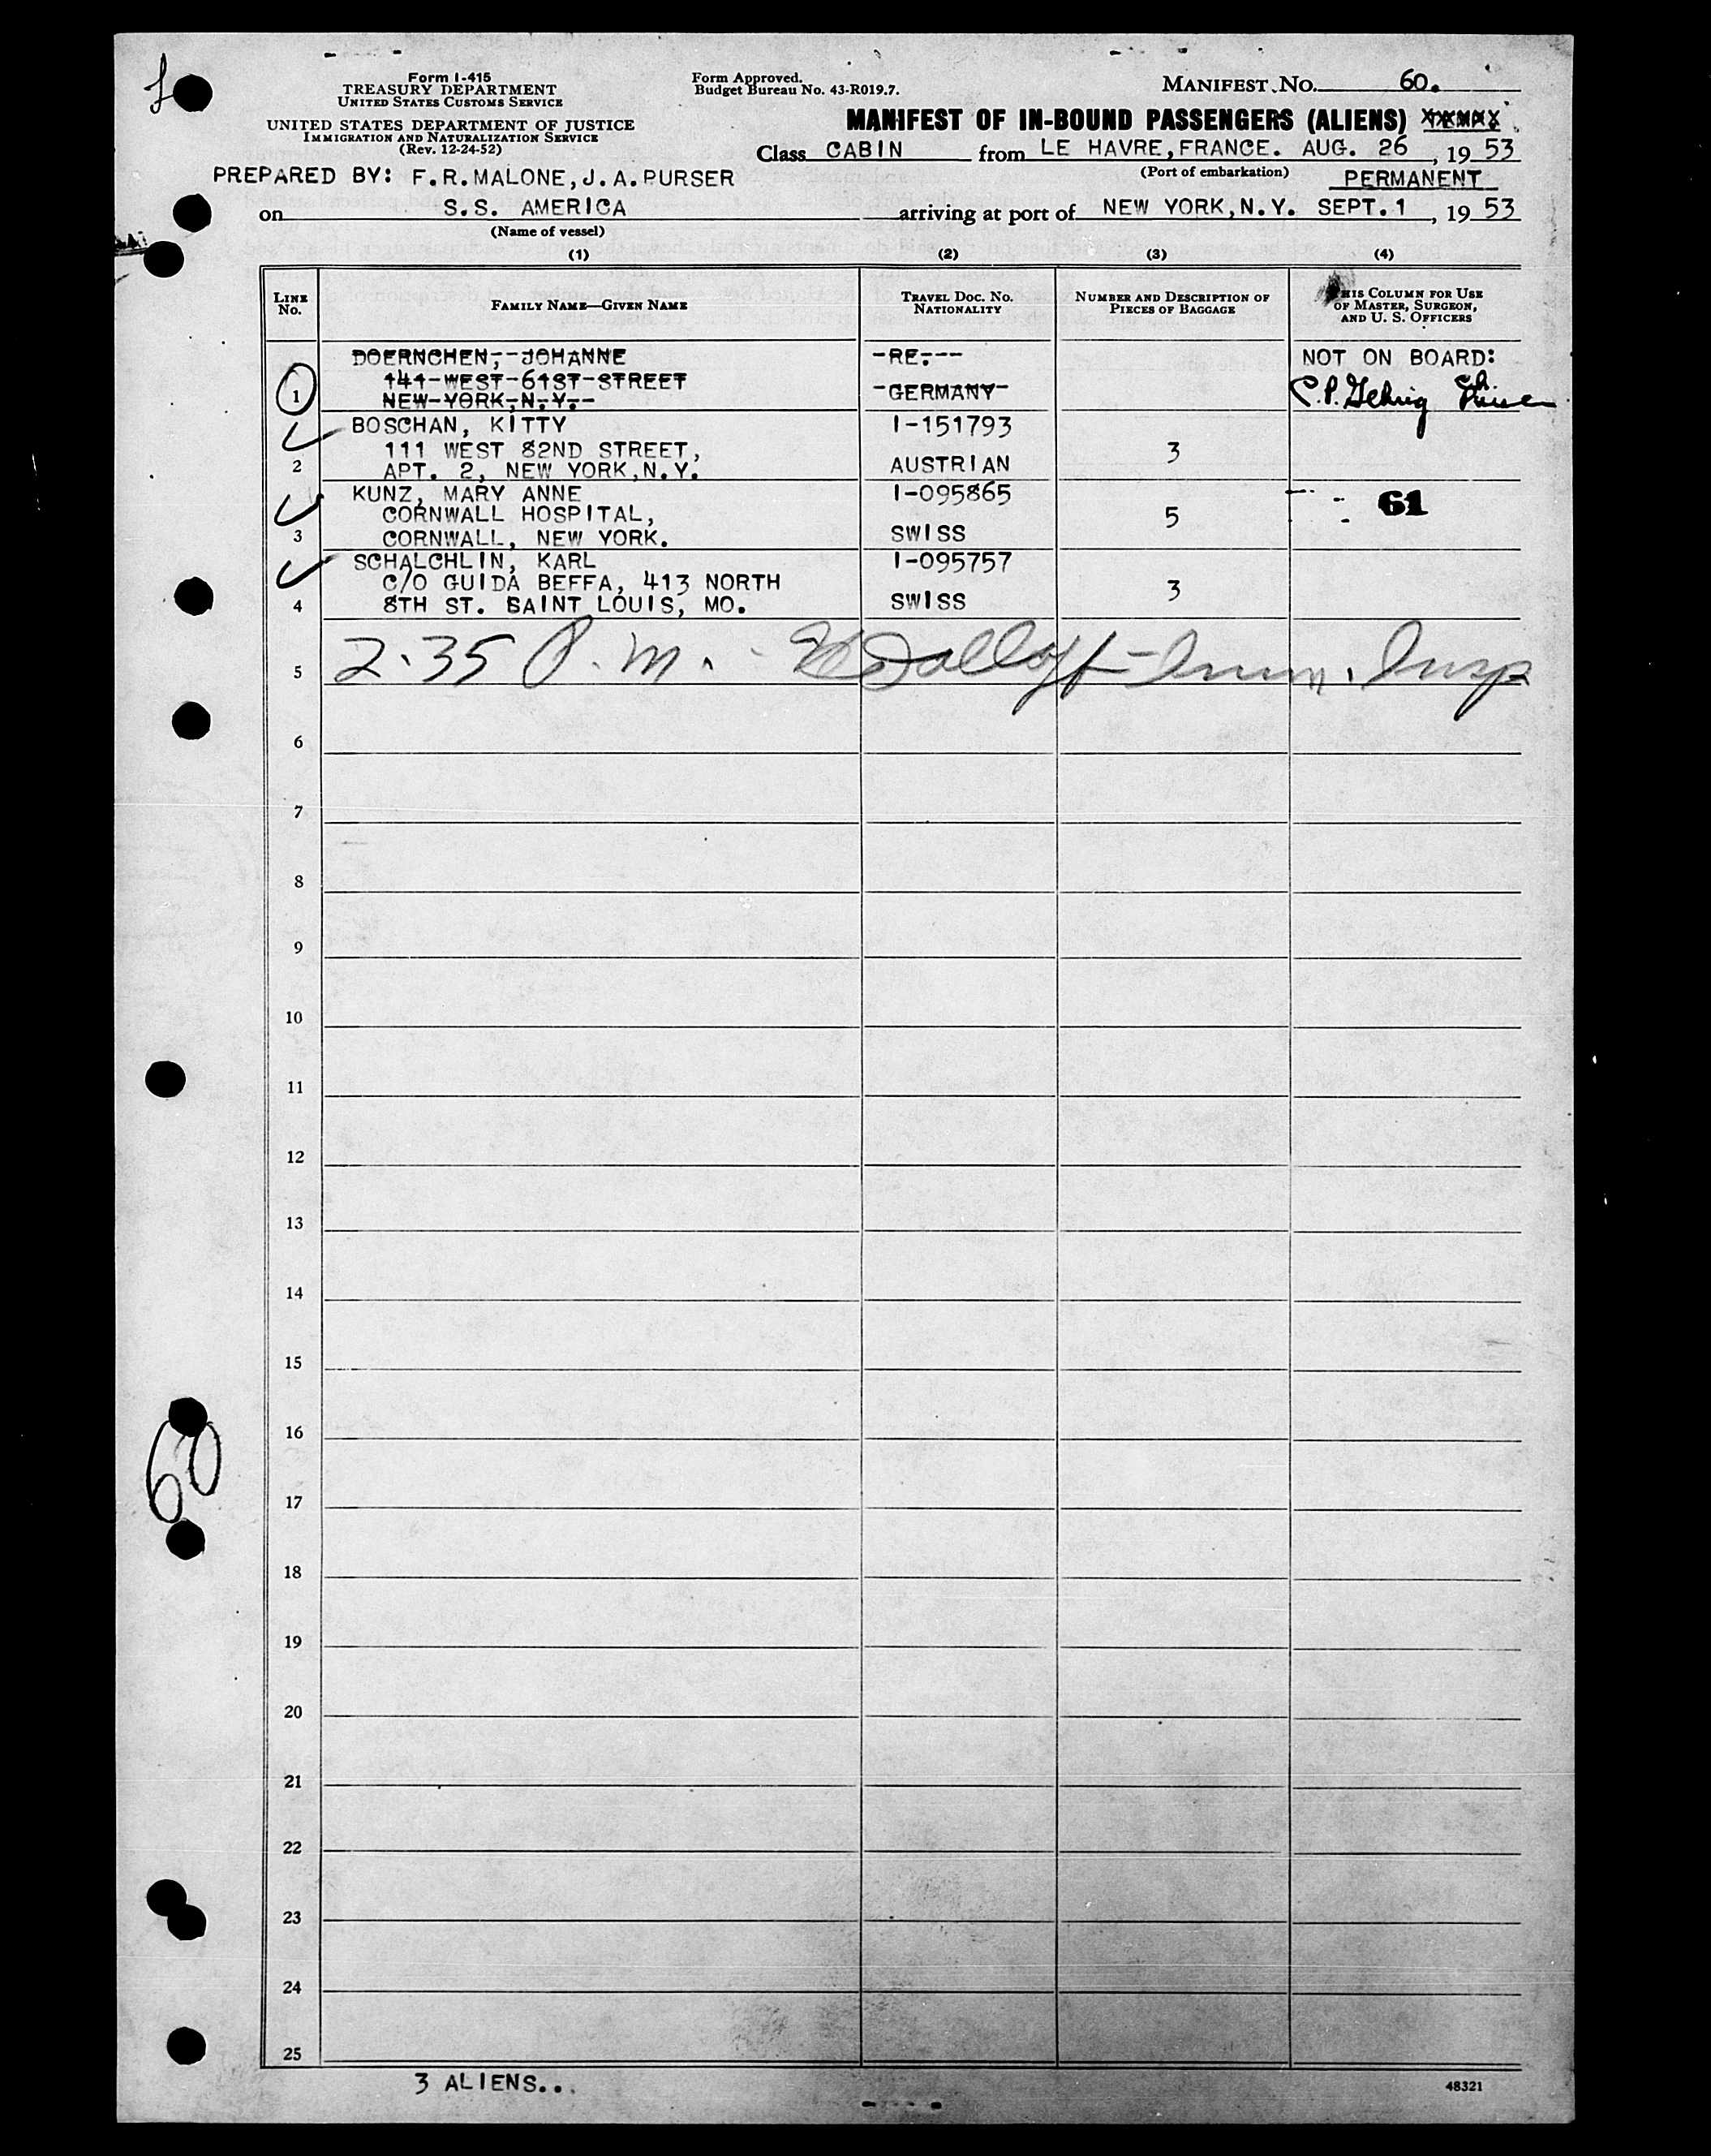 Form I-415
TREASURY DEPARTMENT
UNITED STATES CUSTOMS SERVICE
UNITED STATES DEPARTMENT OF JUSTICE
IMMIGRATION AND NATURALIZATION SERVICE
(Rev. 12-24-52)
Form Approved.
Budget Bureau No. 43-R019.7.
MANIFEST NO. 60.
MANIFEST OF IN-BOUND PASSENGERS (ALIENS)
Class CABIN from LE HAVRE, FRANCE. AUG. 26, 19 53
(Port of embarkation)
PREPARED BY: F.R.MALONE, J.A.PURSER
PERMANENT
on S.S. AMERICA arriving at port of NEW YORK, N.Y. SEPT. 1, 19 53
(Name of vessel)
(1) (2) (3) (4)
LINE NO.
FAMILY NAME—GIVEN NAME
TRAVEL DOC. NO. NATIONALITY
NUMBER AND DESCRIPTION OF PIECES OF BAGGAGE
THIS COLUMN FOR USE OF MASTER, SURGEON, AND U. S. OFFICERS
DOERNCHEN, JOHANNE -RE.--- NOT ON BOARD:
141 WEST 61ST STREET GERMANY C.P. Gehrig Ch. Purser
1 NEW YORK, N.Y.
BOSCHAN, KITTY 1-151793
111 WEST 82ND STREET, 3
2 APT. 2, NEW YORK, N.Y. AUSTRIAN
KUNZ, MARY ANNE 1-095865 61
CORNWALL HOSPITAL, 5
3 CORNWALL, NEW YORK. SWISS
SCHALCHLIN, KARL 1-095757
C/O GUIDA BEFFA, 413 NORTH 3
4 8TH ST. SAINT LOUIS, MO. SWISS
5 2.35 P.M. - Imm. Insp
6
7
8
9
10
11
12
13
14
15
16
60
17
18
19
20
21
22
23
24
25
3 ALIENS...
48321